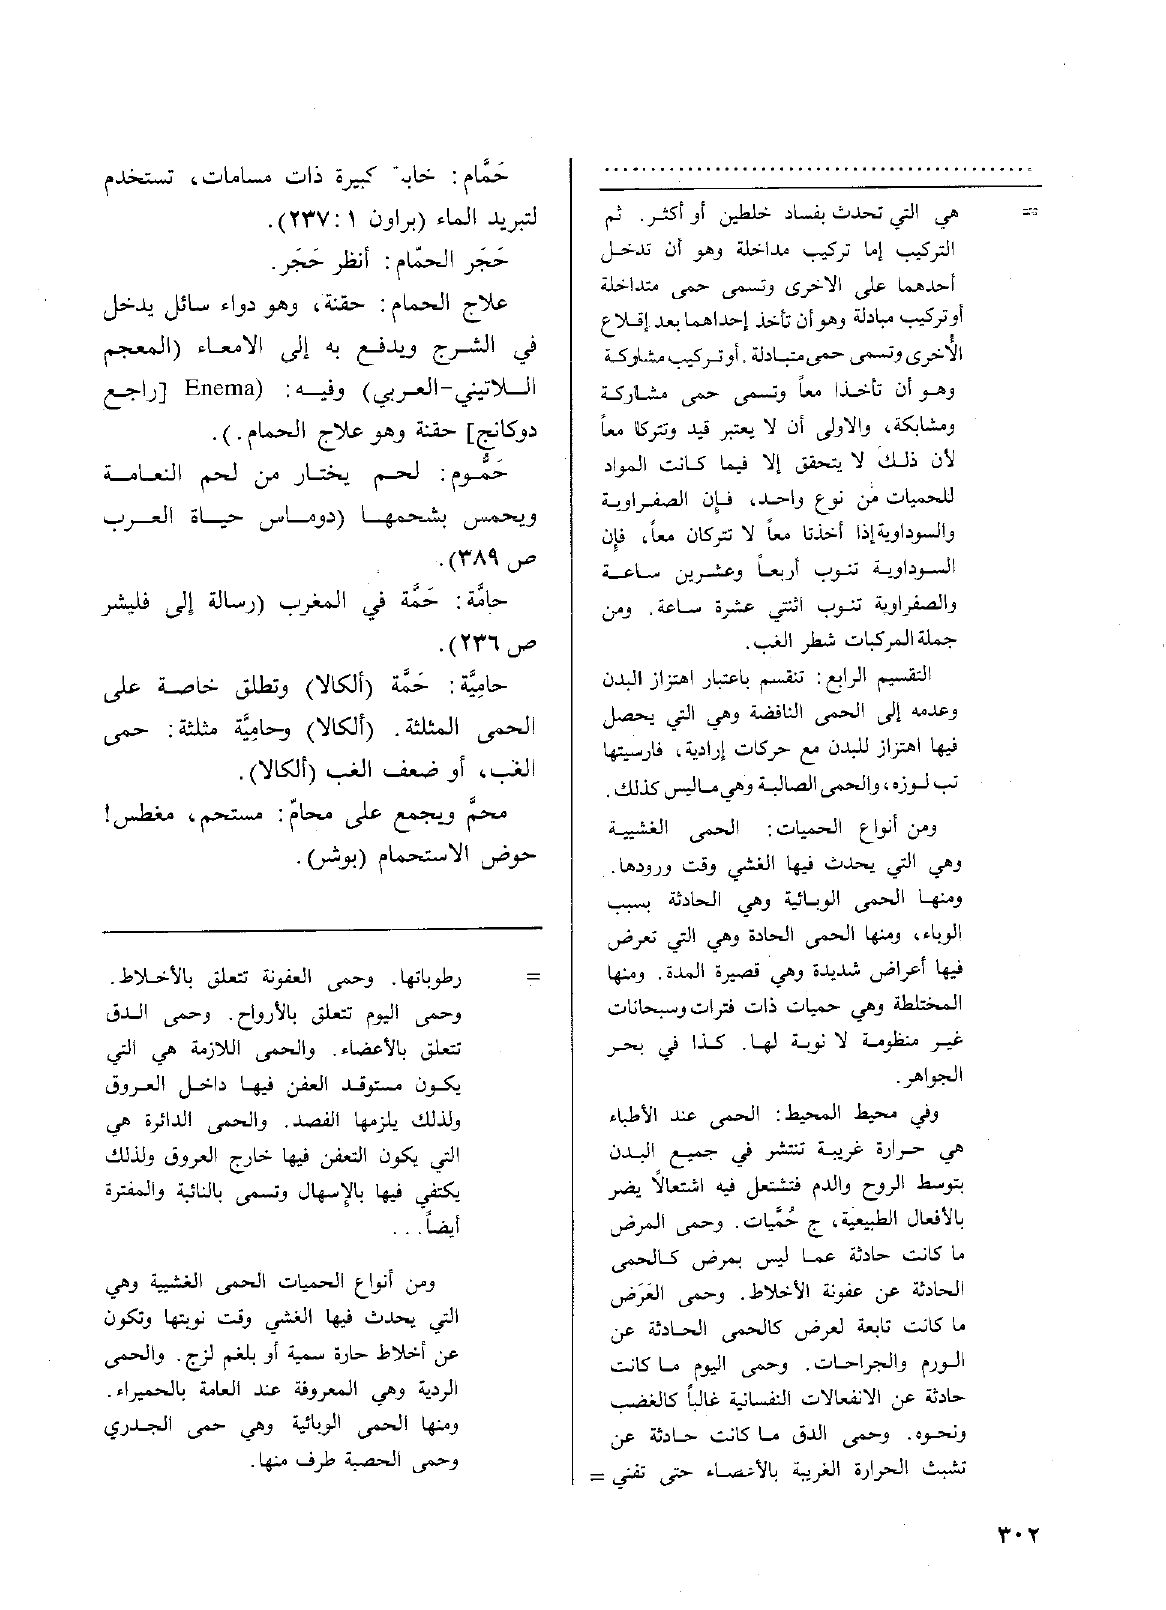 ........................................
= هي التي تحدث بفساد خلطين أو أكثر. ثم
التركيب إما تركيب مداخلة وهو أن تدخل
أحدهما على الاخرى وتسمى حمى متداخلة
أو تركيب مبادلة وهو أن تأخذ إحداهما بعد إقلاع
الأخرى وتسمى حمى متبادلة. أو تركيب مشاركة
وهو أن تأخذا معاً وتسمى حمى مشاركة
ومشابكة، والاولى أن لا يعتبر قيد وتتركا معاً
لأن ذلك لا يتحقق إلا فيما كانت المواد
للحميات من نوع واحد، فإن الصفراوية
والسوداوية إذا أخذتا معاً لا تتركان معاً، فإن
السوداوية تنوب أربعاً وعشرين ساعة
والصفراوية تنوب اثنتي عشرة ساعة. ومن
جملة المركبات شطر الغب.
التقسيم الرابع: تنقسم باعتبار اهتزاز البدن
وعدمه إلى الحمى النافضة وهي التي يحصل
فيها اهتزاز للبدن مع حركات إرادية، فارسيتها
تب لوزه، والحمى الصالبة وهي ما ليس كذلك.
ومن أنواع الحميات: الحمى الغشيية
وهي التي يحدث فيها الغشي وقت ورودها.
ومنها الحمى الوبائية وهي الحادثة بسبب
الوباء، ومنها الحمى الحادة وهي التي تعرض
فيها أعراض شديدة وهي قصيرة المدة. ومنها
المختلطة وهي حميات ذات فترات وسبحانات
غير منظومة لا نوبة لها. كذا في بحر
الجواهر.
وفي محيط المحيط: الحمى عند الأطباء
هي حرارة غريبة تنتشر في جميع البدن
بتوسط الروح والدم فتشتعل فيه اشتعالاً يضر
بالأفعال الطبيعية، ج حُمَّيات. وحمى المرض
ما كانت حادثة عما ليس بمرض كالحمى
الحادثة عن عفونة الأخلاط. وحمى العَرَض
ما كانت تابعة لعرض كالحمى الحادثة عن
الورم والجراحات. وحمى اليوم ما كانت
حادثة عن الانفعالات النفسانية غالباً كالغضب
ونحوه. وحمى الدق ما كانت حادثة عن
تشبث الحرارة الغريبة بالأعضاء حتى تفني =
حَمَّام: كبيرة ذات مسامات، تستخدم
لتبريد الماء (براون ١: ٢٣٧).
حَجَر الحمّام: أنظر حَجَر.
علاج الحمام: حقنة، وهو دواء سائل يدخل
في الشرج ويدفع به إلى الامعاء (المعجم
اللاتيني-العربي) وفيه: (Enema [راجع
دوكانج] حقنة وهو علاج الحمام.).
حَمُّوم: لحم يختار من لحم النعامة
ويحمس بشحمها (دوماس حياة العرب
ص ٣٨٩).
حامَّة: حَمَّة في المغرب (رسالة إلى فليشر
ص ٢٣٦).
حامِيَّة: حَمَّة (ألكالا) وتطلق خاصة على
الحمى المثلثة. (ألكالا) وحامِيَّة مثلثة: حمى
الغب، أو ضعف الغب (ألكالا).
محمَّ ويجمع على محامّ: مستحم، مغطس!
حوض الاستحمام (بوشر).
= رطوباتها. وحمى العفونة تتعلق بالأخلاط.
وحمى اليوم تتعلق بالأرواح. وحمى الدق
تتعلق بالأعضاء. والحمى اللازمة هي التي
يكون مستوقد العفن فيها داخل العروق
ولذلك يلزمها الفصد. والحمى الدائرة هي
التي يكون التعفن فيها خارج العروق ولذلك
يكتفي فيها بالإسهال وتسمى بالنائبة والمفترة
أيضاً...
ومن أنواع الحميات الحمى الغشيية وهي
التي يحدث فيها الغشي وقت نوبتها وتكون
عن أخلاط حارة سمية أو بلغم لزج. والحمى
الردية وهي المعروفة عند العامة بالحميراء.
ومنها الحمى الوبائية وهي حمى الجدري
وحمى الحصبة طرف منها.
٣٠٢